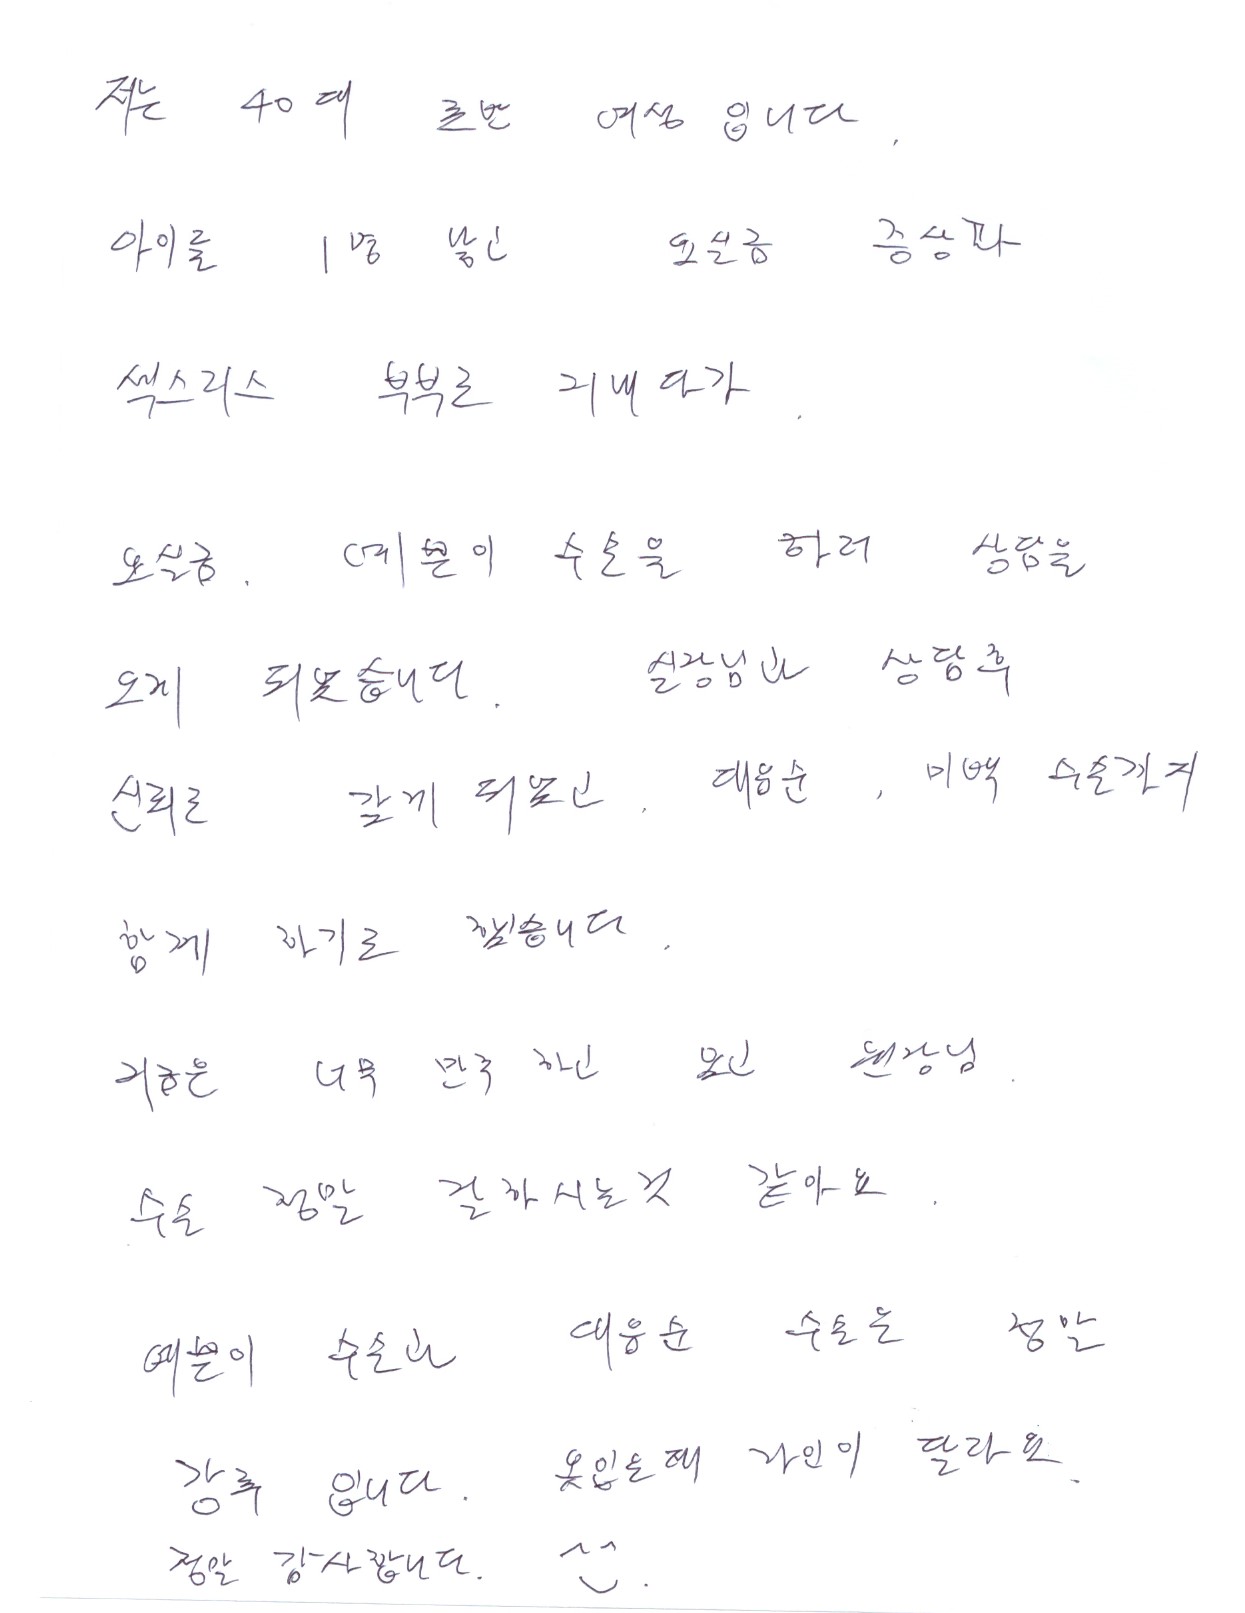 저는 40대 초반 여성 입니다.
아이를 1명 낳고 요실금 증상과
섹스리스 부부로 지내다가.
요실금. 예쁜이 수술을 하러 상담을
오게 되었습니다. 실장님과 상담후
신뢰를 갖게 되었고, 대음순, 미백 수술까지
함께 하기로 했습니다.
지금은 너무 만족 하고 있고 원장님.
수술 정말 잘하시는것 같아요.
예쁜이 수술과 대음순 수술은 정말
강추 입니다. 옷입을때 라인이 달라요.
정말 감사합니다.